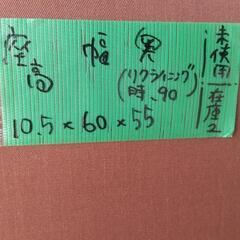 座高 幅 奥
(リクライニング時、90)
10.5×60×55
未使用
在庫2